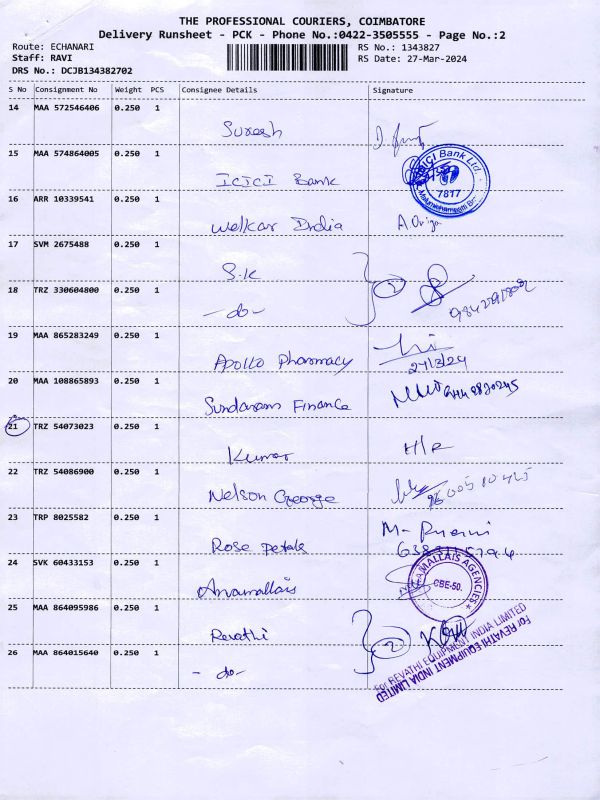 THE PROFESSIONAL COURIERS, COIMBATORE
Delivery Runsheet - PCK - Phone No.:0422-3505555 - Page No.:2
Route: ECHANARI RS No.: 1343827
Staff: RAVI RS Date: 27-Mar-2024
DRS No.: DCJB134382702
S No Consignment No Weight PCS Consignee Details Signature
14 MAA 572546406 0.250 1
Suresh
15 MAA 574864005 0.250 1
ICICI Bank
ICICI Bank Ltd.
7817
16 ARR 10339541 0.250 1
Welkar India
17 SVM 2675488 0.250 1
S.K
2
18 TRZ 330604800 0.250 1
-do-
19 MAA 865283249 0.250 1
Apollo Pharmacy
27/3/24
20 MAA 108865893 0.250 1
Sundaram Finance
21 TRZ 54073023 0.250 1
Kumar H/R
22 TRZ 54086900 0.250 1
Nelson George
23 TRP 8025582 0.250 1
Rose petals
24 SVK 60433153 0.250 1
Anamallais
ANAMALLAIS AGENCIES
CBE-50.
25 MAA 864095986 0.250 1
Revathi
2
26 MAA 864015640 0.250 1
-do-
For REVATHI EQUIPMENT INDIA LIMITED
For REVATHI EQUIPMENT INDIA LIMITED